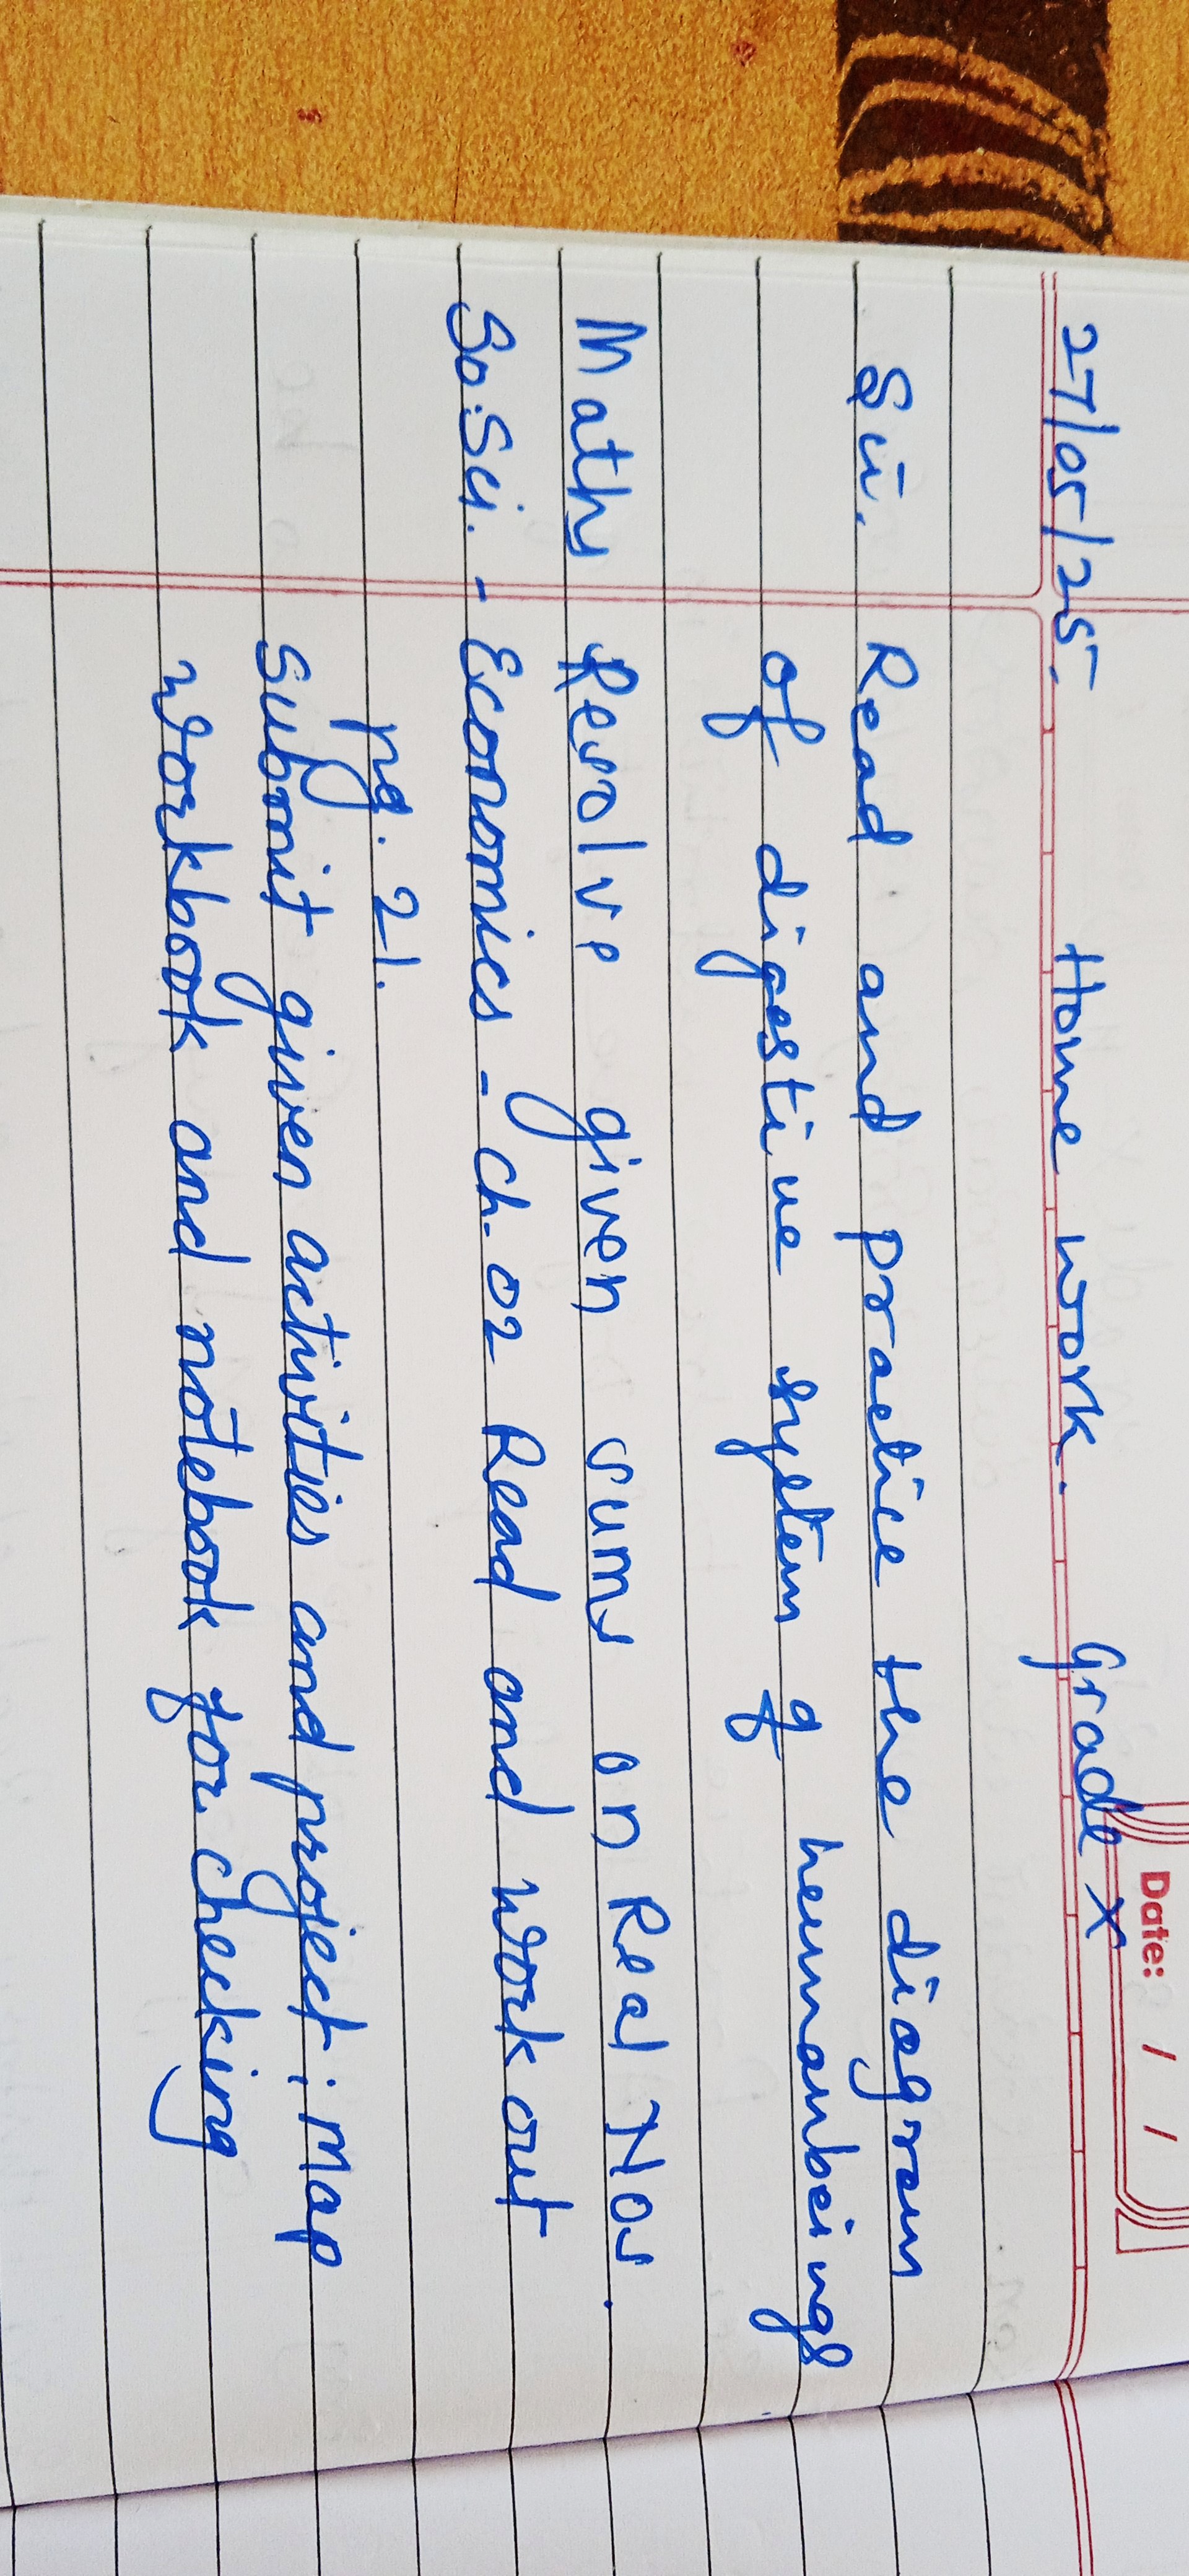 Date: / /
27/05/25. Home work. Grade X
Sci. Read and practice the diagram
of digestive system of humanbeings
Maths Resolve given sums on Real Nos.
So.Sci. - Economics - Ch-02 Read and work out
pg. 21.
Submit given activities and project; Map
workbook and notebook for checking